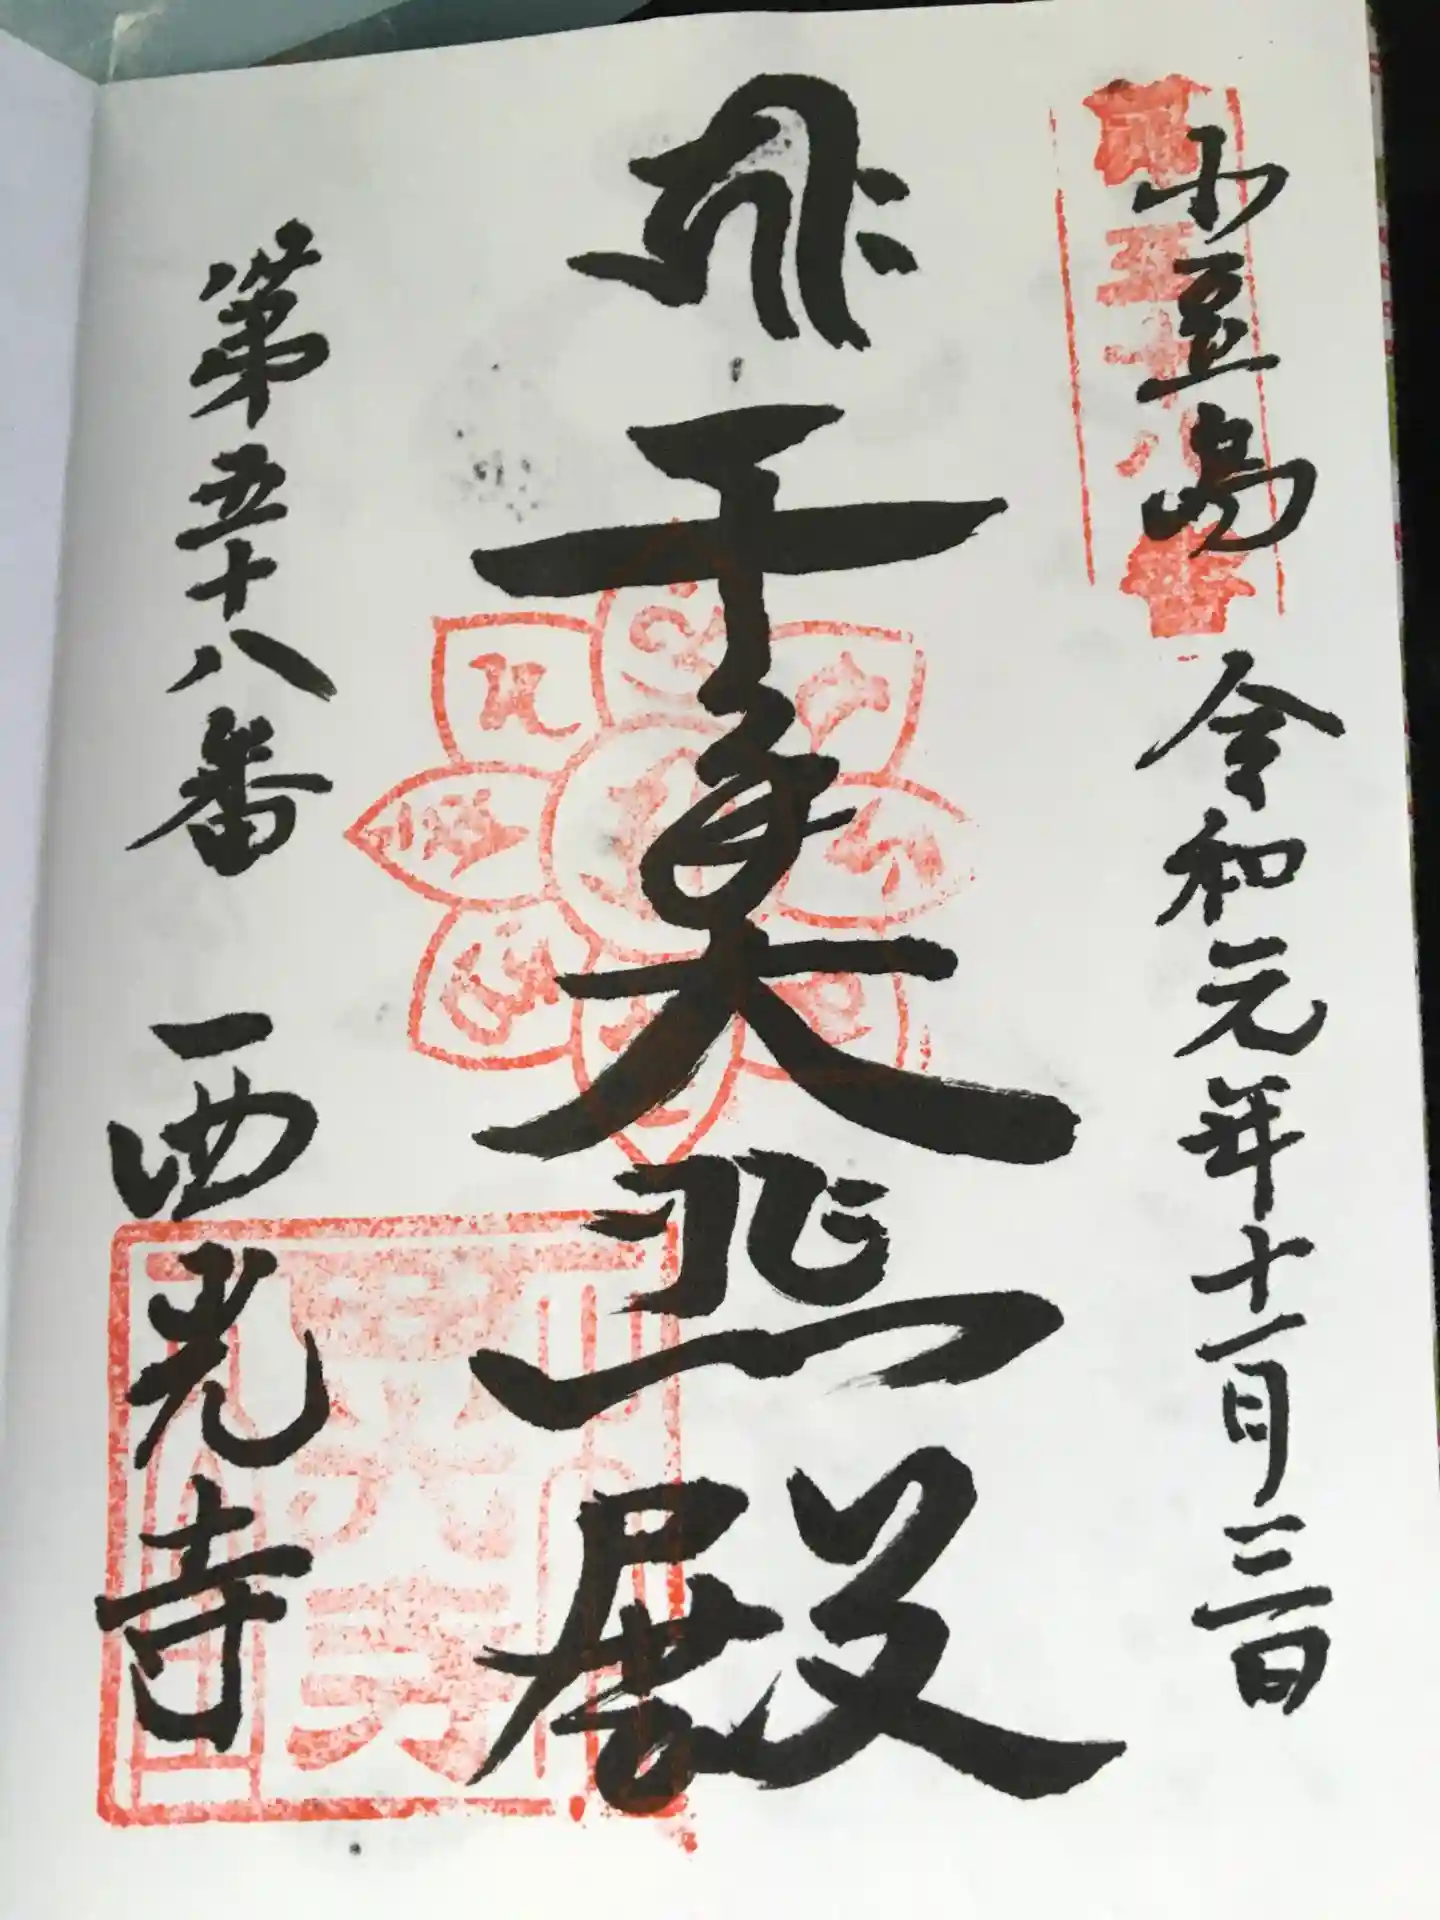 小豆島 令和元年十一月三日
第五十八番
千手大悲殿
第五十八番 西光寺